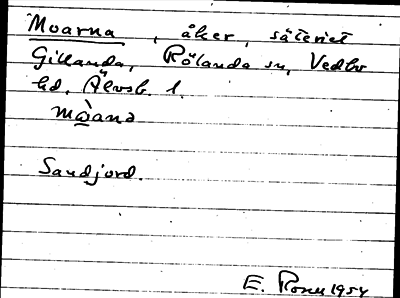 Moarna, åker, säteriet
Gillanda, Rölanda sn, Vedbo
hd, Älvsb. l.
Sandjord.
E. 1954